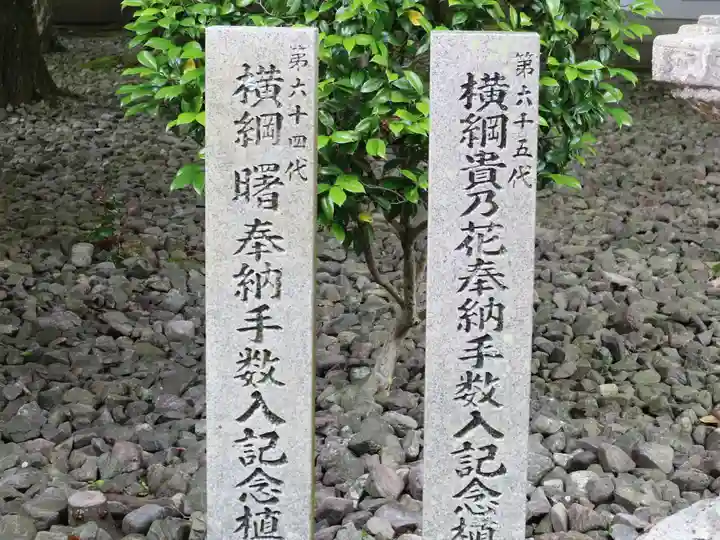 第六十五代
横綱貴乃花奉納手数入記念植
第六十四代
横綱 曙奉納手数入記念植